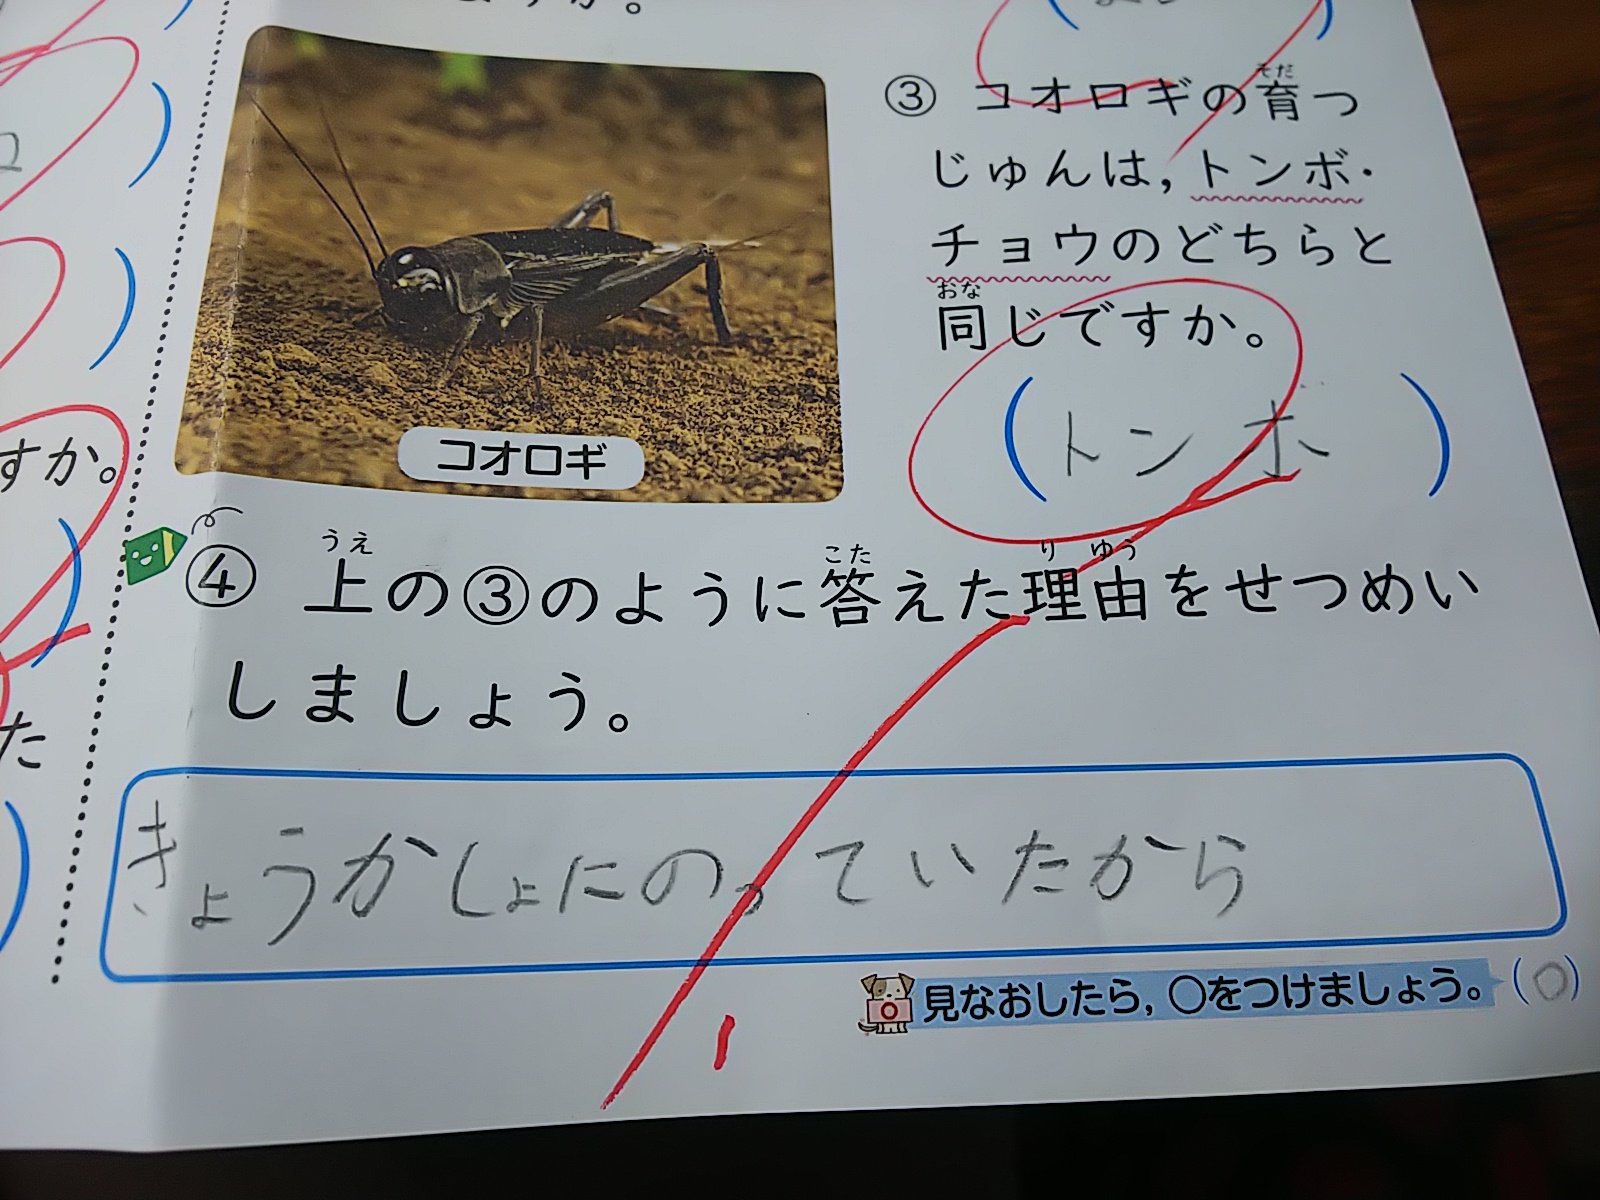 すか。
た
コオロギ
③ コオロギの育つ
そだ
じゅんは,トンボ・
チョウのどちらと
おな
同じですか。
(トンボ)
うえ こた りゆう
④ 上の③のように答えた理由をせつめい
しましょう。
きょうかしょにのっていたから
見なおしたら,○をつけましょう。(○)